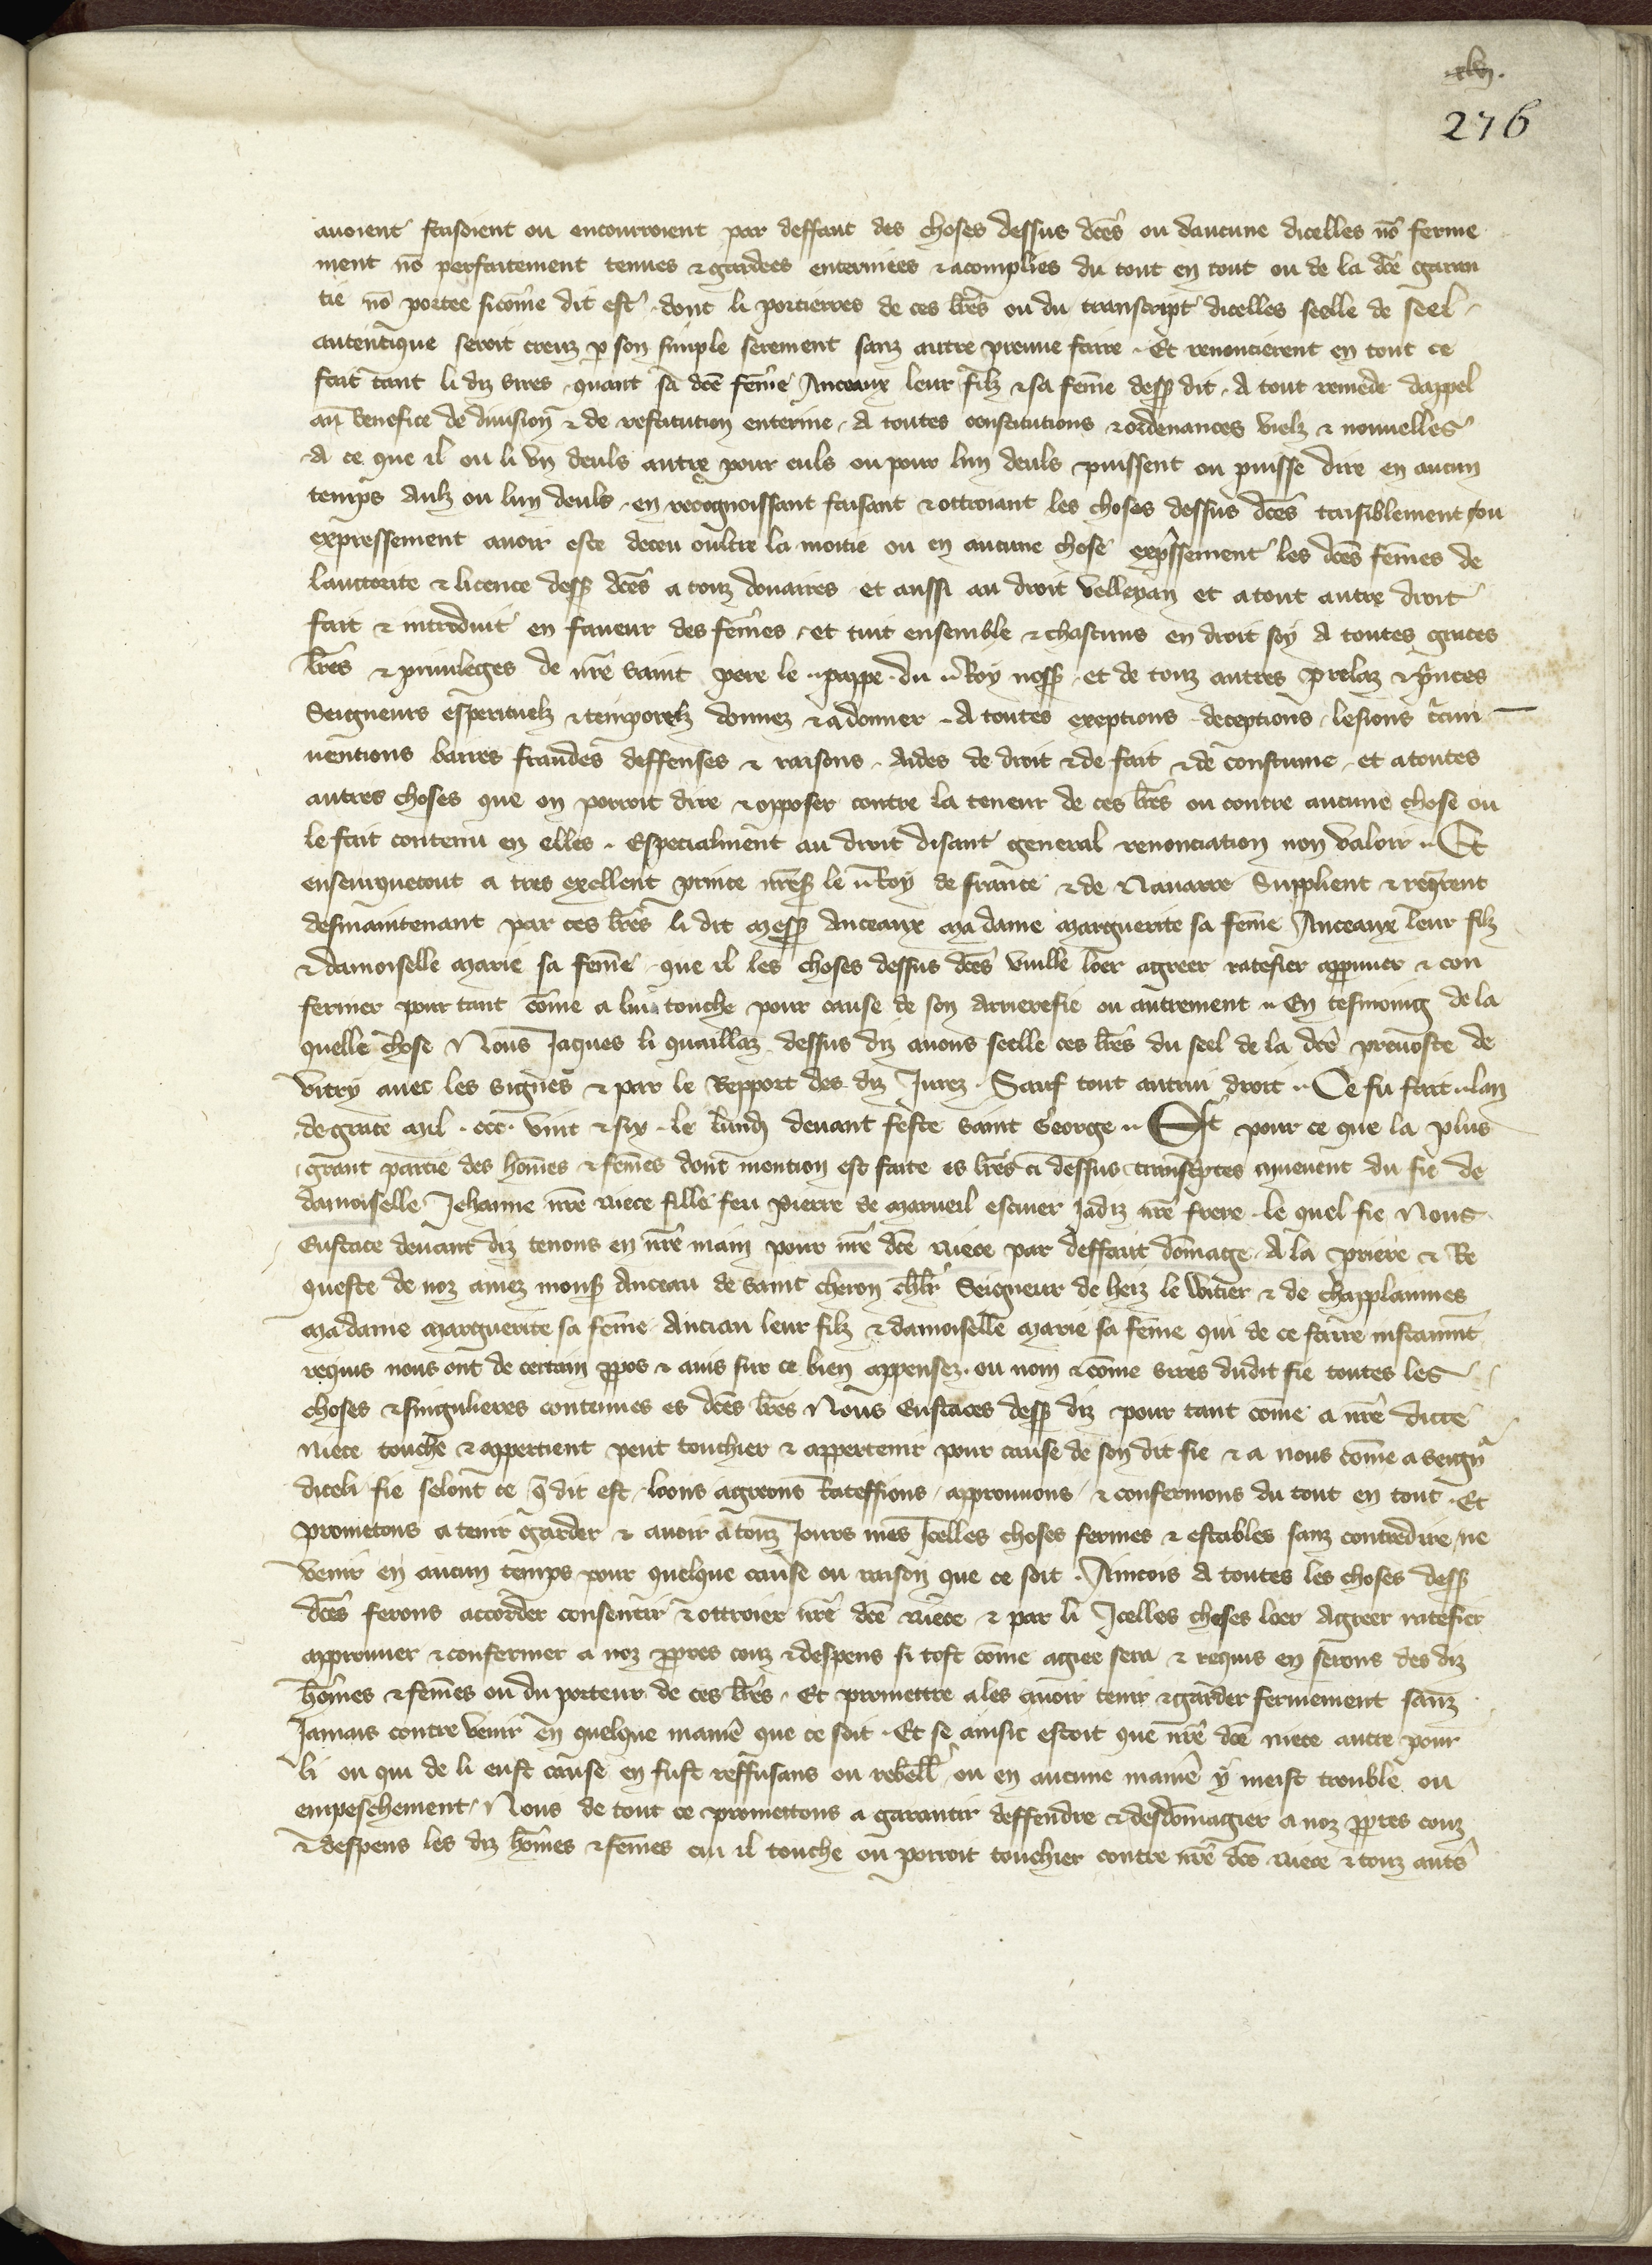 xlvj.
276
avoient faisoient ou encourroient par deffaut des choses dessus dc̃es ou daucune dicelles nõ ferme
ment nõ perfaitement tenues ⁊ gardees enterinees ⁊ acomplies du tout en tout ou de la dc̃e garan
tie nõ portee sicõme dit est . dont li portierres de ces lr̃es ou du transcript dicelles seelle de seel
autentique seroit creuz p son simple serement sanz autre preuue faire . Et renoncierent en tout ce
fait tant li diz sires quant sa dc̃e fem̃e Anceaux leur filz ⁊ sa fem̃e dess dit . A tout remede dappel
au benefice de diuision ⁊ de restitution enterine . A toutes constitutions ⁊ ordenances vielz ⁊ nouuelles
A ce que il ou li vn deuls autre pour euls ou pour lun deuls puissent ou puisse dire en aucun
temps Aulz ou lun deuls . en recognoissant faisant ⁊ ottroiant les choses dessus dc̃es taisiblement ou
expressement auoir este deceu oultre la moitie ou en aucune chose exp̃ssement les dc̃es fem̃es de
lauctorite ⁊ licence dess dc̃es a touz douaires et aussi au droit velleyan et a tout autre droit
fait ⁊ introduit en faueur des fem̃es . et tuit ensemble ⁊ chascuns en droit soy A toutes graces
lr̃es ⁊ priuileges de nr̃e saint pere le pappe . du Roy noss . et de touz autres prelaz ⁊ p̃nces
Seigneurs esperituelz ⁊ temporelz donnez ⁊ a donner . A toutes exeptions deceptions lesions
uentions barres fraudes deffenses ⁊ raisons . Aides de droit ⁊ de fait ⁊ de coustume . et a toutes
autres choses que on porroit dire ⁊ opposer contre la teneur de ces lr̃es ou contre aucune chose ou
le fait contenu en elles . Especialment au droit disant general renonciation non valoir . Et
enseurquetout a tres exellent prince nr̃es le Roy de france ⁊ de Nauarre Supplient ⁊ req̃rent
desmaintenant par ces lr̃es li dit mess Anceaux ma dame marguerite sa fem̃e Anceaux leur filz
⁊ damoiselle marie sa fem̃e . que il les choses dessus dc̃es vuille loer agreer ratefier appuuer ⁊ con
fermer pour tant cõme a lui touche pour cause de son arrierefie ou autrement . En tesmoing de la
quelle chose Nous Jaques li quaillaz dessus diz auons seelle ces lr̃es du seel de la dc̃e preuoste de
vitry auec les signes ⁊ par le Repport des diz Jurez . Sauf tout autrui droit . Ce fu fait . lan
de grace mil . ccc . vint ⁊ six . le lundj deuant feste saint George . Et pour ce que la plus
grant partie des hom̃es ⁊ fem̃es dont mention est faite es lr̃es ci dessus transc̃ptes mueuent du fie de
damoiselle Jehanne nr̃e niece fille feu pierre de marueil escuier Jadiz nr̃e frere . le quel fie Nous
Eustace deuant diz tenons en nr̃e main pour nr̃e dc̃e niece par deffaut dõmage . A la priere ⁊ Re
queste de noz amez mons Anceau de saint cheron chlr̃ Seigneur de heiz le witier ⁊ de chapplaumes
ma dame marguerite sa fem̃e Anciau leur filz ⁊ damoiselle marie sa fem̃e qui de ce faire instaum̃t
requis nous ont de certain ppos ⁊ auis sur ce bien appensez . ou nom ⁊ cõme sires dudit fie toutes les
choses ⁊ singulieres contenues es dc̃es lr̃es Nous Eustaces dess diz pour tant cõme a nr̃e dicte
niece touche ⁊ appertient peut touchier ⁊ appertenir pour cause de son dit fie ⁊ a nous cõme a seign̾
diceli fie selont ce q̃ dit est . loons agreons Rateffions approuuons ⁊ confermons du tout en tout . Et
prometons a tenir garder ⁊ auoir a touz Jours mes Jcelles choses fermes ⁊ estables sanz contredire ne
venir en aucun temps pour quelque cause ou raison que ce soit . Aincois A toutes les choses dess
dc̃es ferons accorder consentir ⁊ ottroier nr̃e dc̃e niece ⁊ par li Jcelles choses loer Agreer ratefier
approuuer ⁊ confermer a noz ppres couz ⁊ despens si tost cõme agiee sera ⁊ requis en serons des diz
hõmes ⁊ fem̃es ou du porteur de ces lr̃es . Et promettre a les auoir tenir ⁊ garder fermement sanz
Jamais contre venir en quelque manie᷒ que ce soit . Et se ainsic estoit que nr̃e dc̃e niece autre pour
li ou qui de li eust cause en fust reffusans ou rebelle ou en aucune manie᷒ y meist trouble ou
empeschement . Nous de tout ce promettons a garantir deffendre ⁊ desdõmagier a noz ppres couz
⁊ despens les diz hõmes ⁊ fem̃es cui il touche ou porroit touchier contre nr̃e dc̃e niece ⁊ touz aut̃s